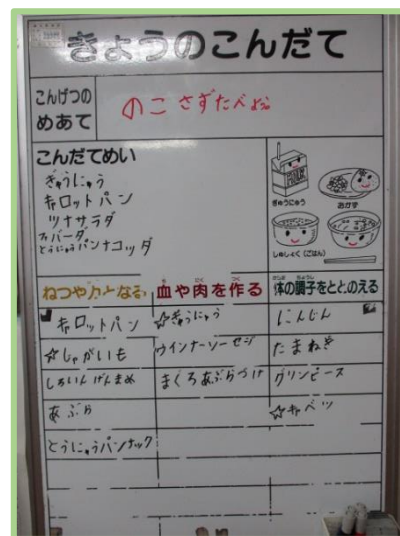 きょうのこんだて
こんげつの
めあて
のこさずたべよう
こんだてめい
ぎゅうにゅう
キャロットパン
ツナサラダ
とうにゅうパンナコッタ
MILK
ぎゅうにゅう
おかず
しゅしょく(ごはん)
ねつや力となる
血や肉を作る
体の調子をととのえる
キャロットパン
☆ぎゅうにゅう
にんじん
☆じゃがいも
ウインナーソーセージ
たまねぎ
しろいんげんまめ
まぐろあぶらづけ
グリンピース
あぶら
☆キャベツ
とうにゅうパンナコッタ